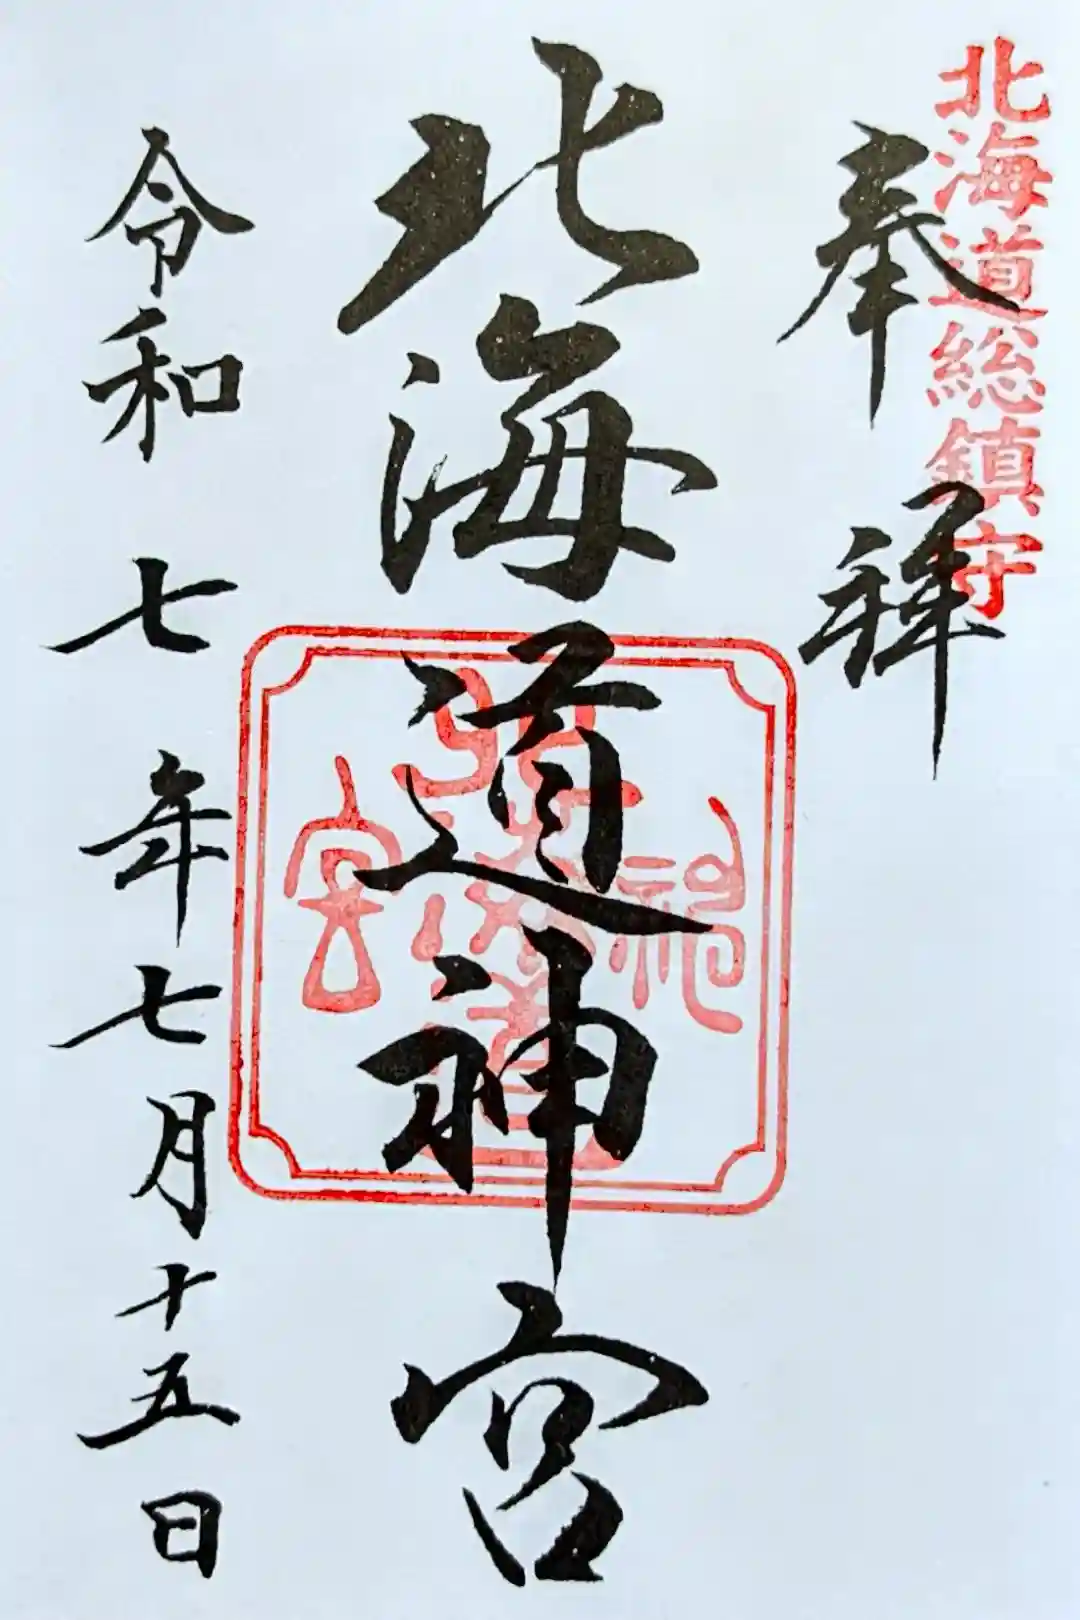 北海道総鎮守
奉拝
北海道神宮
北海道
神
宮
令和七年七月十五日